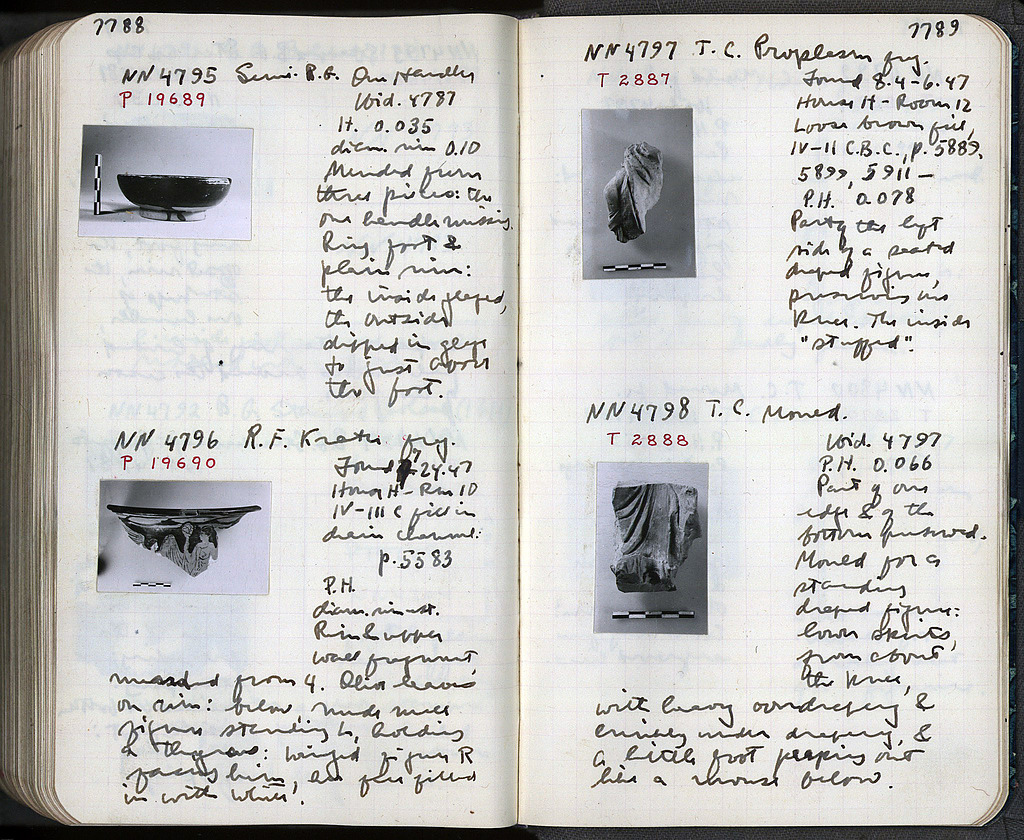 7788
NN 4795 Semi-R.G. One Handler
P 19689
Wid. 4787
H. 0.035
diam. rim 0.10
Mended from
three pieces: the
one handle missing.
Ring foot &
plain rim:
the inside glazed,
the outside
dipped in glaze
to just above
the foot.
NN 4796 R.F. Krater frg.
P 19690
Found 7-24.47
House H - Rm 10
IV-III C fill in
drain channel:
p. 5583
P.H.
diam. rim est.
Rim & upper
wall fragment
mended from 4. Olive leaves
on rim: below, nude male
figure standing L, holding
a thyrsos: winged figure R
facing him, her face filled
in with white.
7789
NN 4797 T.C. Proplasm frg.
T 2887
Found 8.4-6.47
House H - Room 12
Loose brown fill,
IV-II C.B.C., p. 5889,
5899, 5911 -
P.H. 0.078
Part of the left
side of a seated
draped figure,
preserving one
knee. The inside
"stuffed".
NN 4798 T.C. Mould.
T 2888
Wid. 4797
P.H. 0.066
Part of one
edge & of the
bottom preserved.
Mould for a
standing
draped figure:
lower skirts,
from about
the knee,
with heavy overdrapery &
crinkly under drapery, &
a little foot peeping out
like a mouse below.